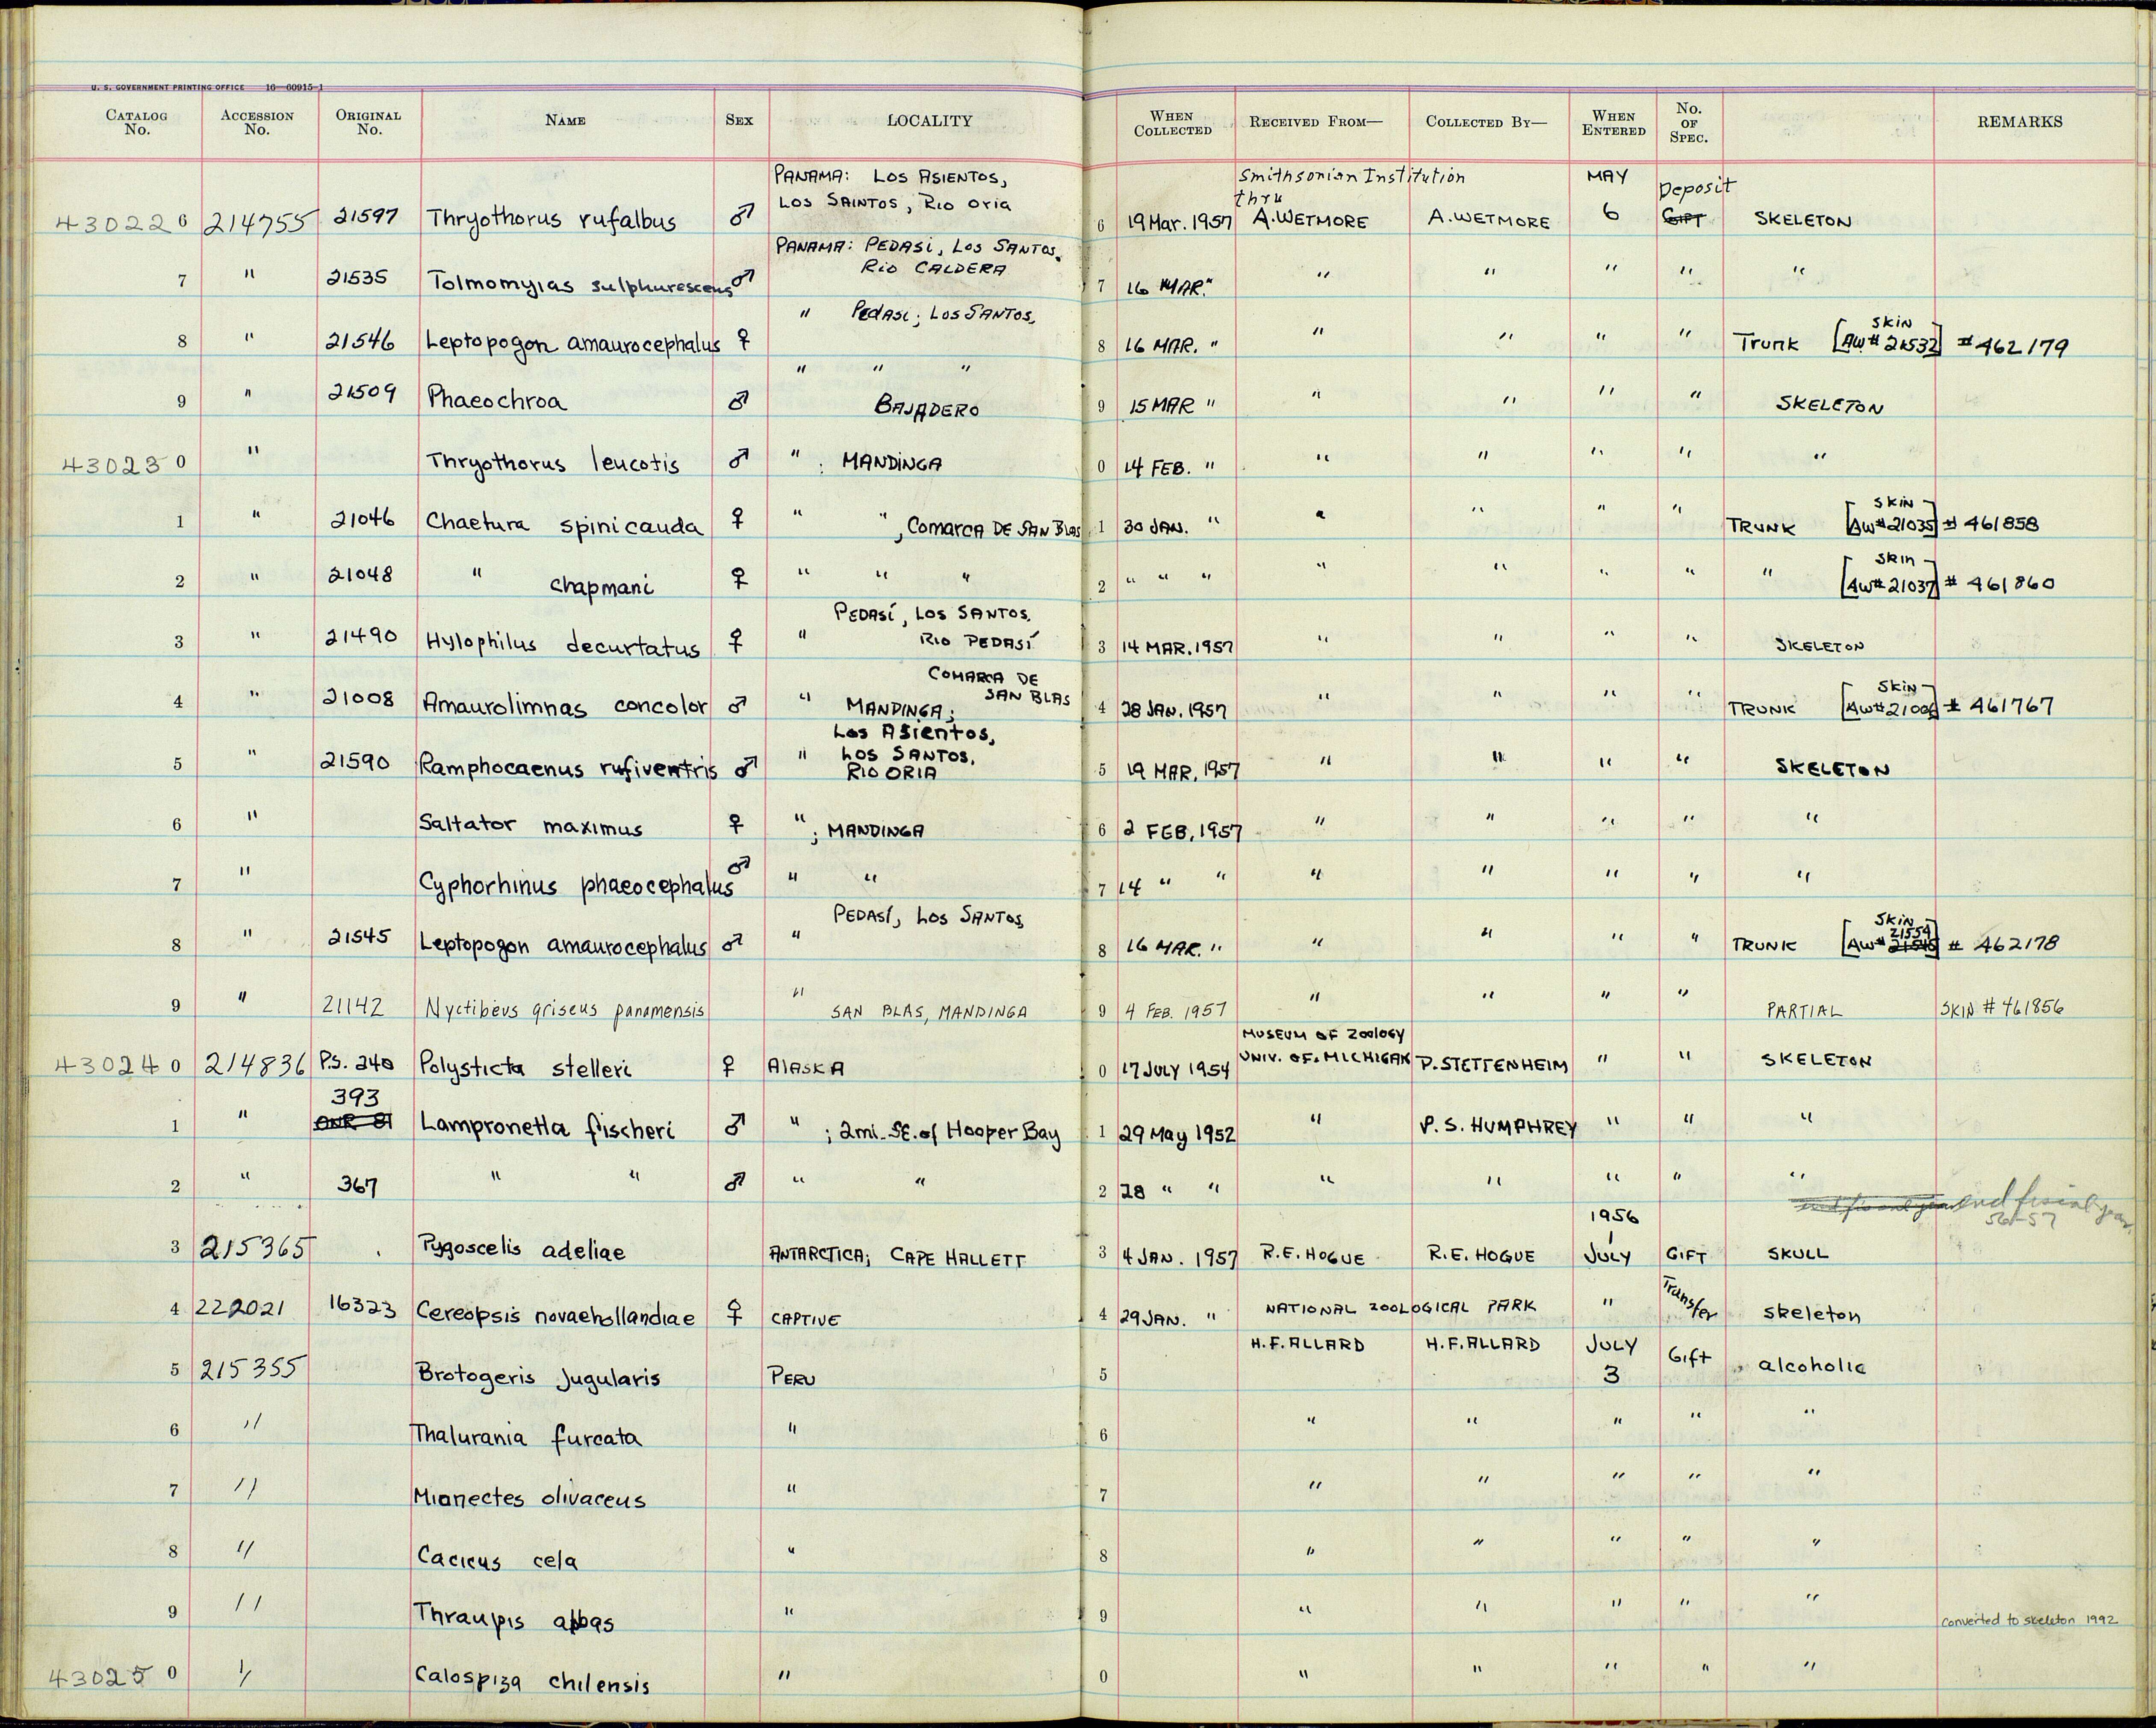 U. S. GOVERNMENT PRINTING OFFICE 16—60915-1
CATALOG No. ACCESSION No. ORIGINAL No. NAME SEX LOCALITY WHEN COLLECTED RECEIVED FROM— COLLECTED BY— WHEN ENTERED No. OF SPEC. REMARKS
PANAMA: LOS ASIENTOS, Smithsonian Institution MAY Deposit
LOS SAINTOS, Rio Oria thru
430226 214755 21597 Thryothorus rufalbus ♂ 6 19 Mar. 1957 A. WETMORE A. WETMORE 6 GIFT SKELETON
PANAMA: PEDASi, LOS SANTOS,
RiO CALDERA
7 " 21535 Tolmomyias sulphurescens ♂ 7 16 MAR. " " " " " "
" Pedasi; LOS SANTOS, SKIN
8 " 21546 Leptopogon amaurocephalus ♀ 8 16 MAR. " " " " " Trunk [AW# 21532] # 462179
" " "
9 " 21509 Phaeochroa ♂ BAJADERO 9 15 MAR " " " " " SKELETON
430230 " Thryothorus leucotis ♂ " ; MANDINGA 0 14 FEB. " " " " " "
SKIN
1 " 21046 Chaetura spinicauda ♀ " ", Comarca DE SAN BLAS 1 30 JAN. " " " " " TRUNK [AW# 21035] # 461858
SKIN
2 " 21048 " chapmani ♀ " " " 2 " " " " " " " " [AW# 21037] # 461860
PEDASÍ, LOS SANTOS,
3 " 21490 Hylophilus decurtatus ♀ " RIO PEDASÍ 3 14 MAR. 1957 " " " " SKELETON
COMARCA DE
SAN BLAS SKIN
4 " 21008 Amaurolimnas concolor ♂ " MANDINGA; 4 28 JAN. 1957 " " " " TRUNK [AW# 21006] # 461767
Los Asientos,
LOS SANTOS,
5 " 21590 Ramphocaenus rufiventris ♂ " RIO ORIA 5 19 MAR, 1957 " " " " SKELETON
6 " Saltator maximus ♀ " ; MANDINGA 6 2 FEB, 1957 " " " " "
7 " Cyphorhinus phaeocephalus ♂ " " 7 14 " " " " " " "
PEDASÍ, LOS SANTOS, SKIN
21554
8 " 21545 Leptopogon amaurocephalus ♂ " 8 16 MAR. " " " " " TRUNK [AW# 21545] # 462178
9 " 21142 Nyctibeus griseus panamensis " SAN BLAS, MANDINGA 9 4 FEB. 1957 " " " " PARTIAL SKIN # 461856
MUSEUM OF ZOOLOGY
430240 214836 P.S. 240 Polysticta stelleri ♀ AlASKA 0 17 JULY 1954 UNIV. OF. MICHIGAN P. STETTENHEIM " " SKELETON
393
1 " Lampronetta fischeri ♂ " ; 2 mi. SE. of Hooper Bay 1 29 May 1952 " P. S. HUMPHREY " " "
2 " 367 " " ♂ " " 2 28 " " " " " " "
end fiscal year
56-57
1956
3 215365 Pygoscelis adeliae ANTARCTICA; CAPE HALLETT 3 4 JAN. 1957 R. E. HOGUE R. E. HOGUE 1 JULY GIFT SKULL
4 222021 16323 Cereopsis novaehollandiae ♀ CAPTIVE 4 29 JAN. " NATIONAL ZOOLOGICAL PARK " Transfer skeleton
H. F. ALLARD H. F. ALLARD JULY
5 215355 Brotogeris jugularis PERU 5 3 Gift alcoholic
6 " Thalurania furcata " 6 " " " " "
7 " Mionectes olivaceus " 7 " " " " "
8 " Cacicus cela " 8 " " " " "
9 " Thraupis abbas " 9 " " " " " Converted to skeleton 1992
430250 " Calospiza chilensis " 0 " " " " "